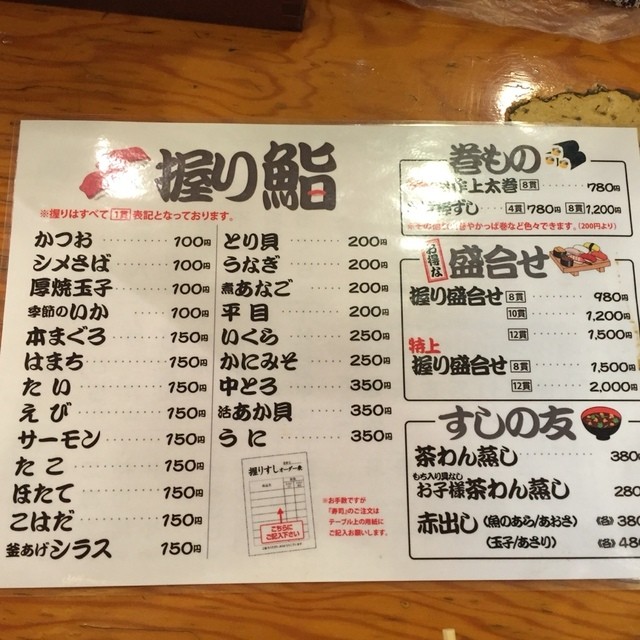 握り鮨
※握りはすべて1貫表記となっております。
かつお 100円
シメさば 100円
厚焼玉子 100円
季節のいか 100円
本まぐろ 150円
はまち 150円
たい 150円
えび 150円
サーモン 150円
たこ 150円
ほたて 150円
こはだ 150円
釜あげシラス 150円
とり貝 200円
うなぎ 200円
煮あなご 200円
平目 200円
いくら 250円
かにみそ 250円
中とろ 350円
活あか貝 350円
うに 350円
握りすし オーダー表
こちらに
ご記入下さい
※お手数ですが
「寿司」のご注文は
テーブル上の用紙に
ご記入お願いします。
巻もの
上太巻 8貫 780円
ずし 4貫 780円 8貫 1,200円
巻やかっぱ巻など色々できます。(200円より)
お得な
盛合せ
握り盛合せ 8貫 980円
10貫 1,200円
12貫 1,500円
特上
握り盛合せ 8貫 1,500円
12貫 2,000円
すしの友
茶わん蒸し 380
もち入り具なし
お子様茶わん蒸し 280
赤出し (魚のあら/あおさ) (各) 380
(玉子/あさり) (各) 480